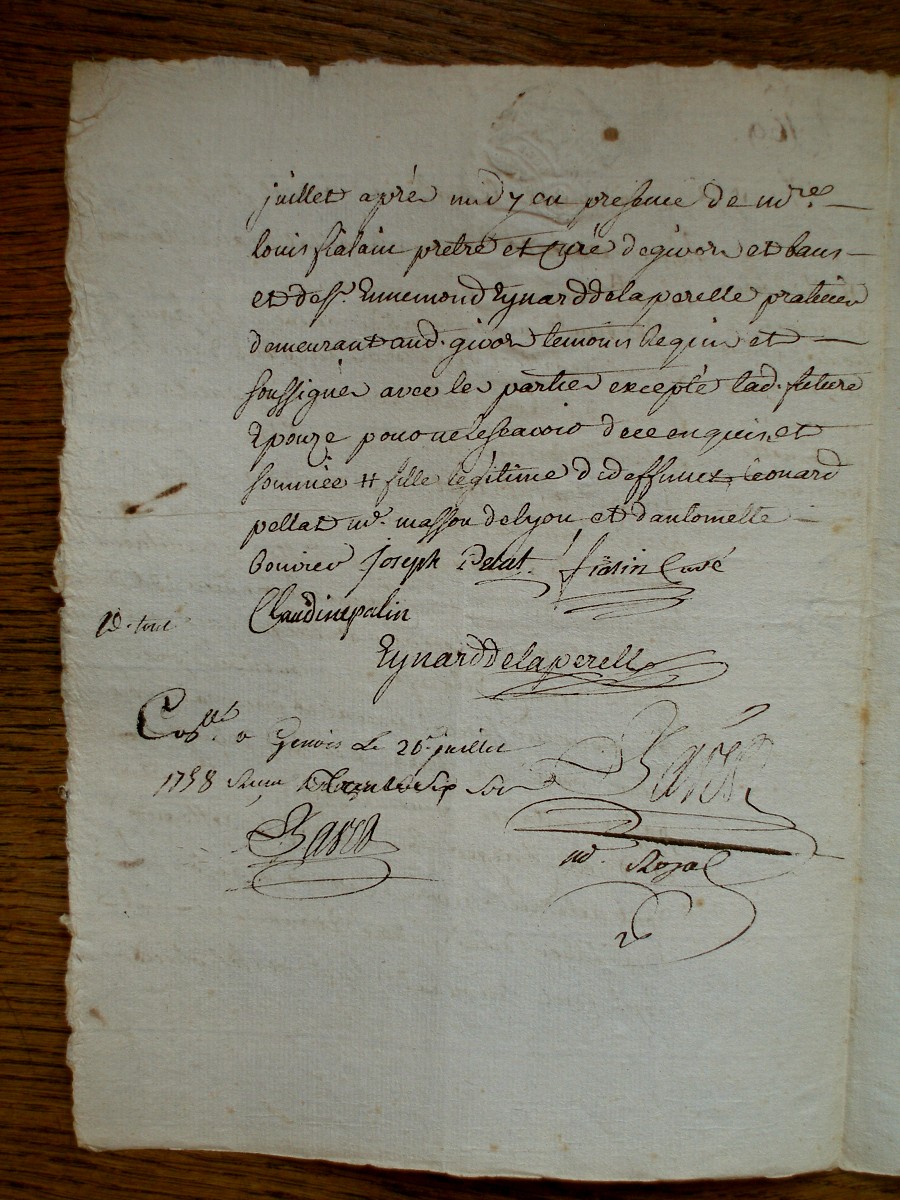 juillet aprés midy en presence de mre.
louis fialain pretre et Curé de givors et bans
et de sr. Ennemond Eynard delaperelle praticien
demeurant aud. givors temoins requis et
soussignés avec les parties excepté lad. future
Epouze pour ne le scavoir de ce enquise et
sommée # fille legitime de deffunct Léonard
pellat md. masson de lyon et d'antoinette
bouvier Joseph Pelat. fialin Curé
Claudine palin
Eynard Delaperelle
Collé. a Le 26 juillet
1758 trente six sols
nre. Royal